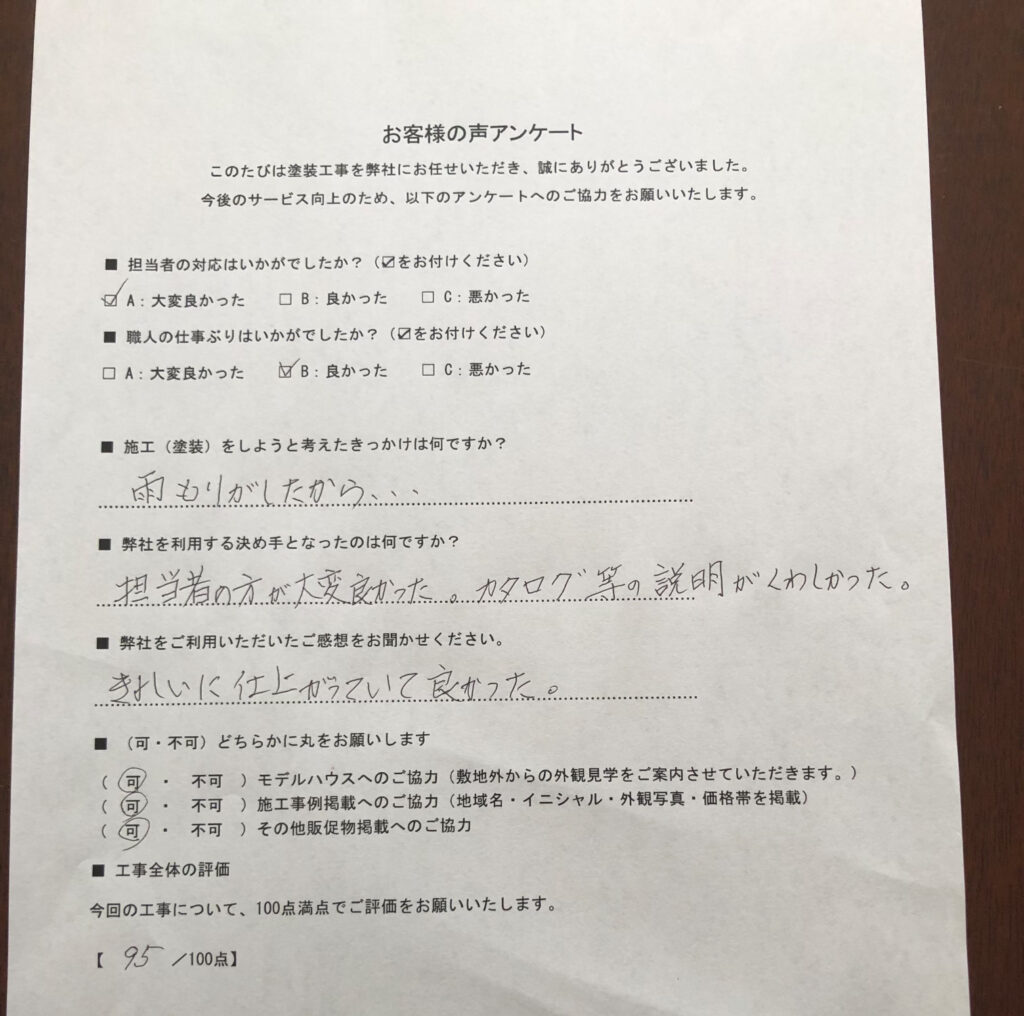 お客様の声アンケート
このたびは塗装工事を弊社にお任せいただき、誠にありがとうございました。
今後のサービス向上のため、以下のアンケートへのご協力をお願いいたします。
■ 担当者の対応はいかがでしたか？（☑をお付けください）
☑ A：大変良かった □ B：良かった □ C：悪かった
■ 職人の仕事ぶりはいかがでしたか？（☑をお付けください）
□ A：大変良かった ☑ B：良かった □ C：悪かった
■ 施工（塗装）をしようと考えたきっかけは何ですか？
雨もりがしたから、、、
■ 弊社を利用する決め手となったのは何ですか？
担当者の方が大変良かった。カタログ等の説明がくわしかった。
■ 弊社をご利用いただいたご感想をお聞かせください。
きれいに仕上がっていて良かった。
■ （可・不可）どちらかに丸をお願いします
（ 可 ・ 不可 ）モデルハウスへのご協力（敷地外からの外観見学をご案内させていただきます。）
（ 可 ・ 不可 ）施工事例掲載へのご協力（地域名・イニシャル・外観写真・価格帯を掲載）
（ 可 ・ 不可 ）その他販促物掲載へのご協力
■ 工事全体の評価
今回の工事について、100点満点でご評価をお願いいたします。
【 95 ／100点】